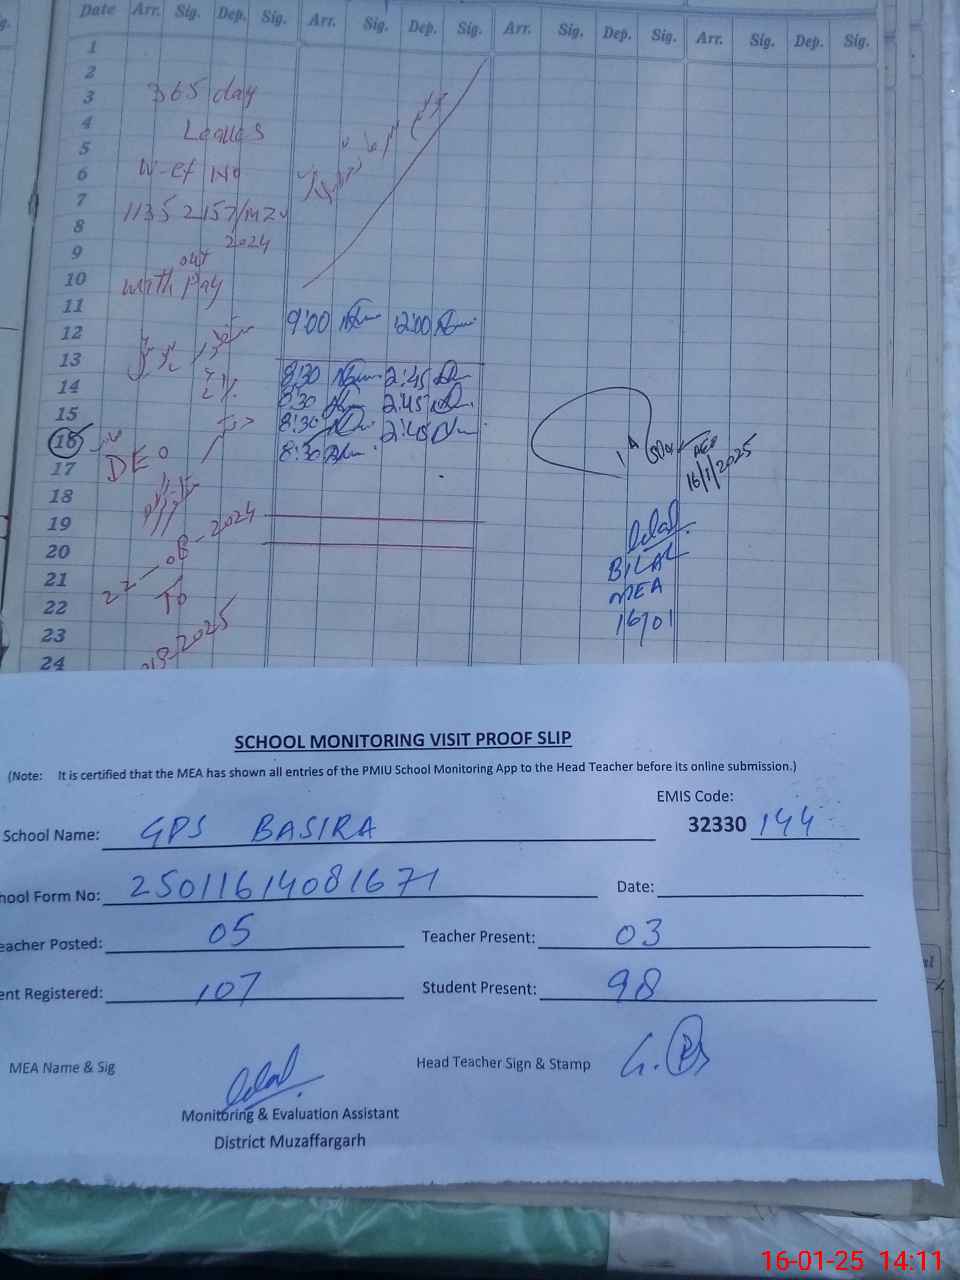 Date Arr. Sig. Dep. Sig. Arr. Sig. Dep. Sig. Arr. Sig. Dep. Sig. Arr. Sig. Dep. Sig.
1
2
3 365 day
4 Leaves
5
6 W-ef No
7 11352157/MZ
8 2024
9 out
10 with Pay
11 9:00 12:00
12
13 8:30 2:45
14 8:30 2:45
15 8:30 2:45
16 8:30
17 DEO
AEO
16/1/2025
18
19
20 22-08-2024
21 To
22
23 2025
24
BILAL
MEA
16/01
SCHOOL MONITORING VISIT PROOF SLIP
(Note: It is certified that the MEA has shown all entries of the PMIU School Monitoring App to the Head Teacher before its online submission.)
EMIS Code:
School Name: GPS BASIRA 32330 144
hool Form No: 25011614081671 Date:
eacher Posted: 05 Teacher Present: 03
ent Registered: 107 Student Present: 98
MEA Name & Sig Head Teacher Sign & Stamp
Monitoring & Evaluation Assistant
District Muzaffargarh
16-01-25 14:11